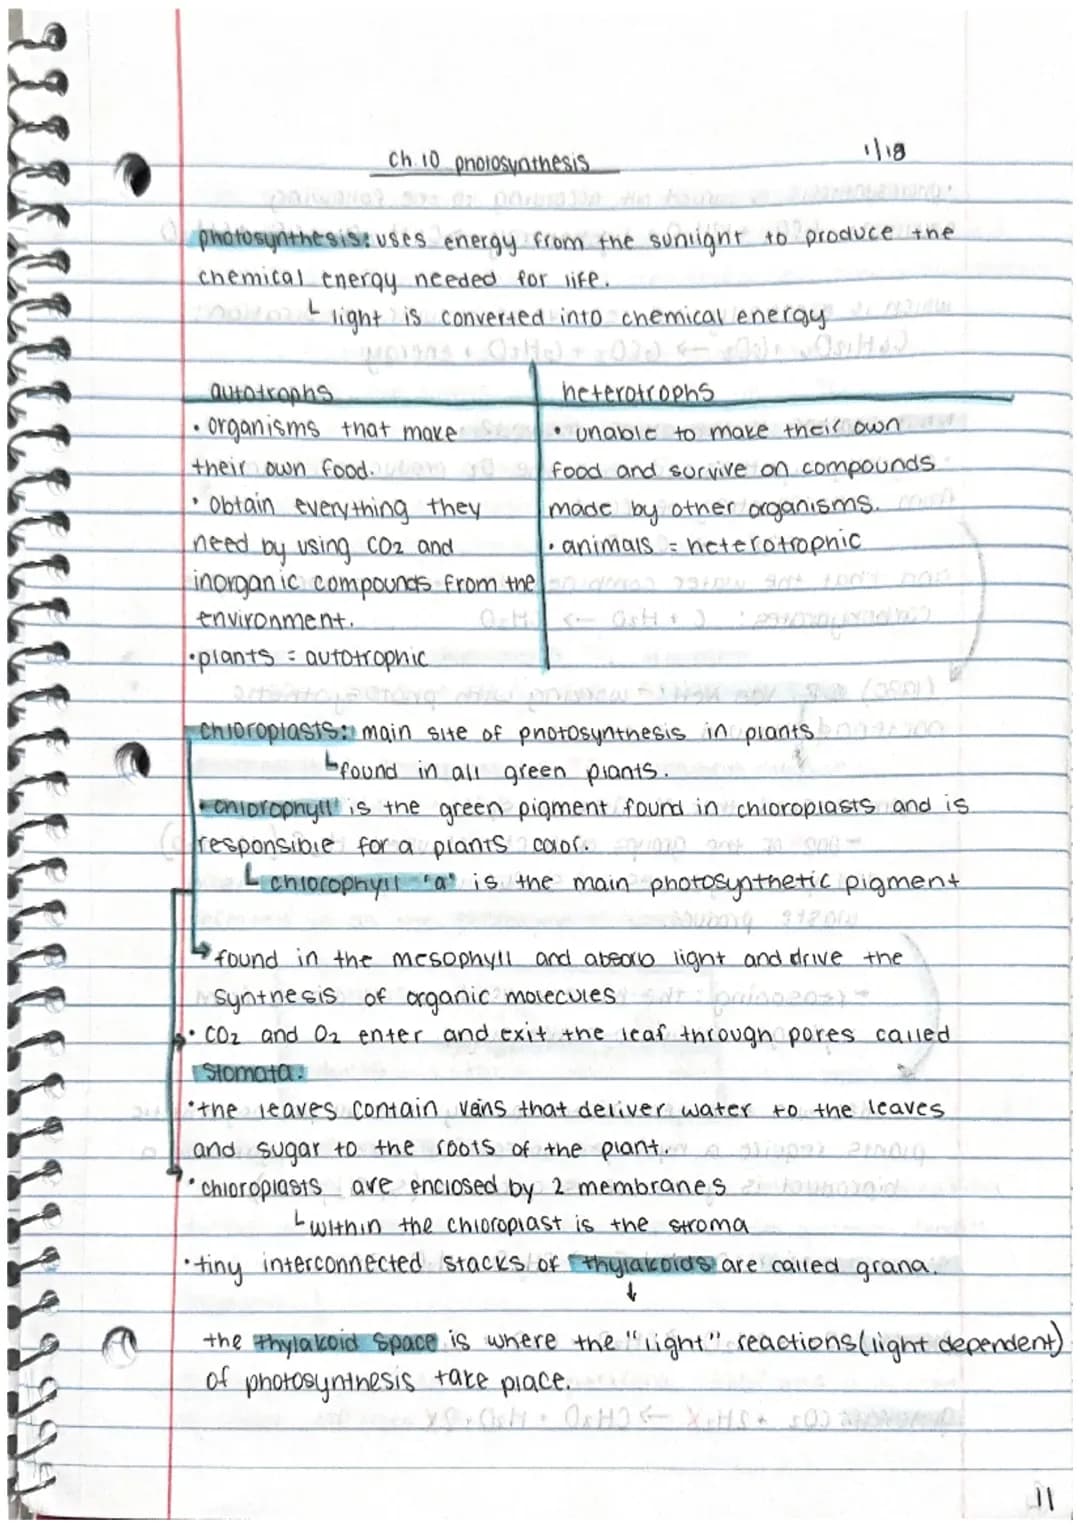 Ch. 10 photosynthesis
1/18
photosynthesis: uses energy from the sunlight to produce the
chemical energy needed for life.
light is converted into chemical energy
autotrophs
• organisms that make
their own food.
• obtain everything they
need by using CO2 and
inorganic compounds from the
environment.
• plants = autotrophic
heterotrophs
• unable to make their own
food and survive on compounds
made by other organisms.
• animals = heterotrophic
chloroplasts: main site of photosynthesis in plants
found in all green plants.
• chlorophyll is the green pigment found in chloroplasts and is
responsible for a plants color.
chlorophyll "a" is the main photosynthetic pigment
found in the mesophyll and absorb light and drive the
synthesis of organic molecules
• CO2 and O2 enter and exit the leaf through pores called
stomata.
• the leaves contain veins that deliver water to the leaves
and sugar to the roots of the plant.
• chloroplasts are enclosed by 2 membranes
within the chloroplast is the stroma
• tiny interconnected stacks of thylakoids are called grana.
the thylakoid space is where the "light" reactions (light dependent)
of photosynthesis take place.
11